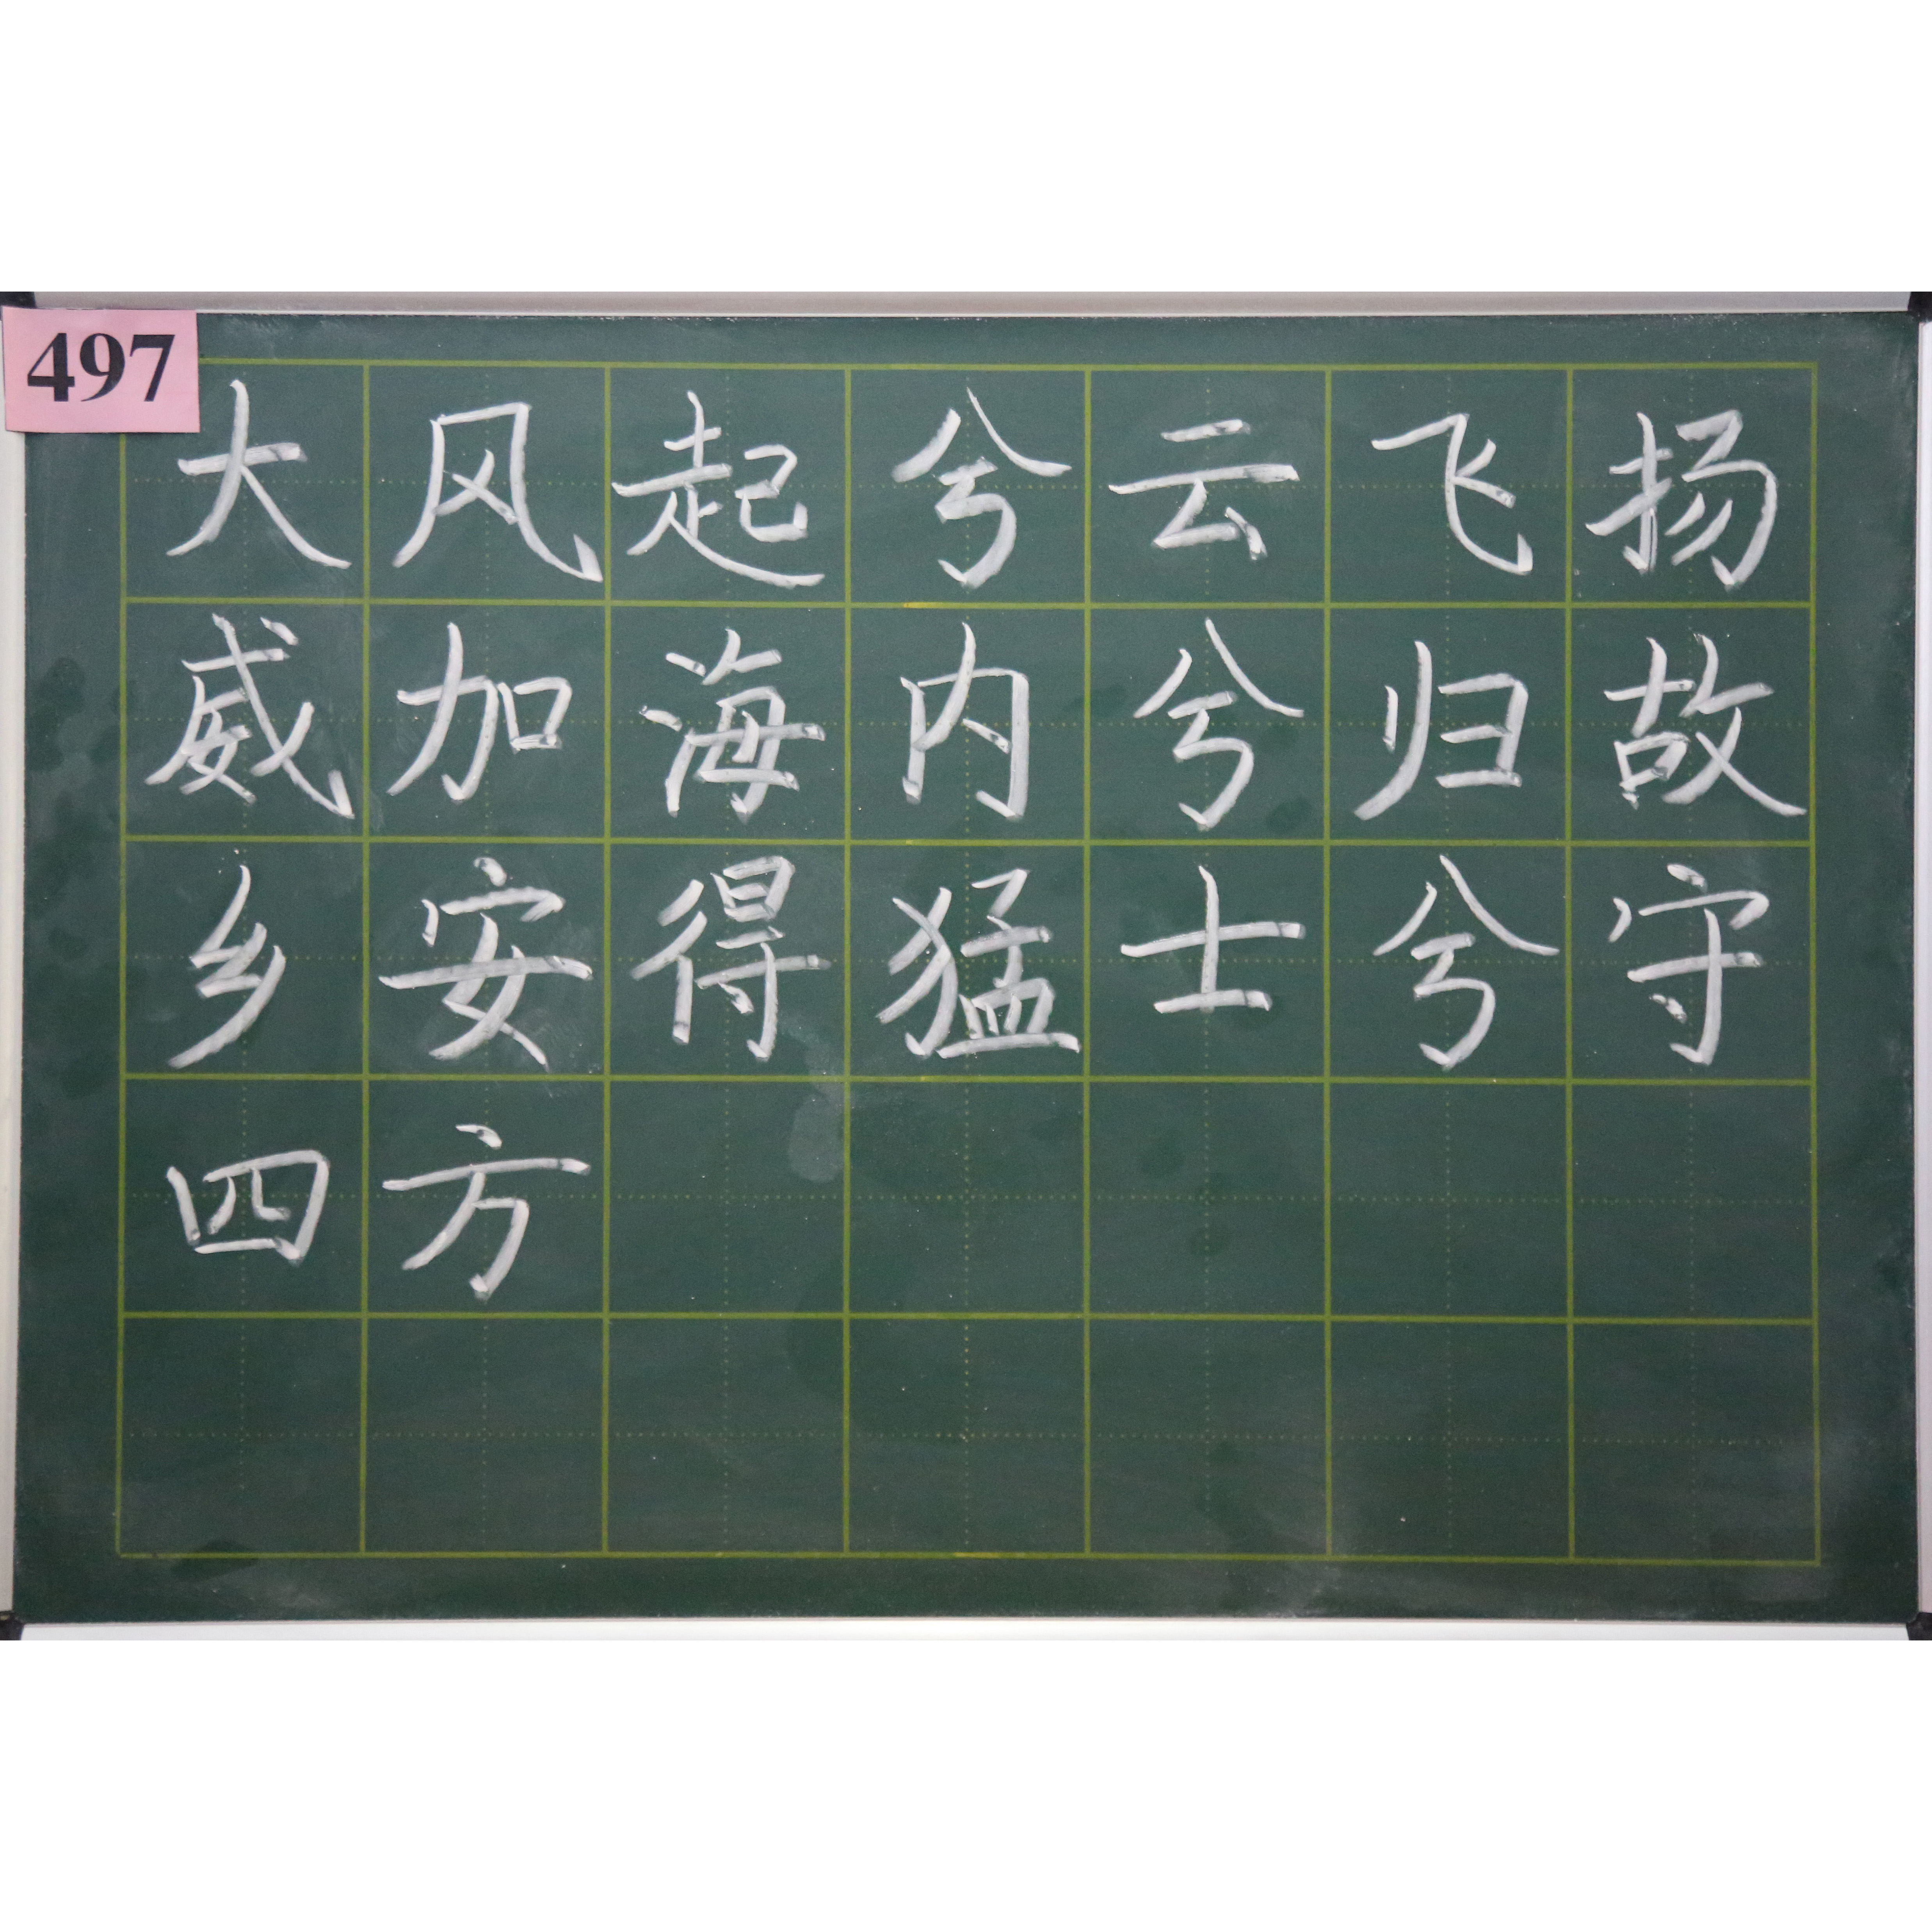 497
大风起兮云飞扬
威加海内兮归故
乡安得猛士兮守
四方